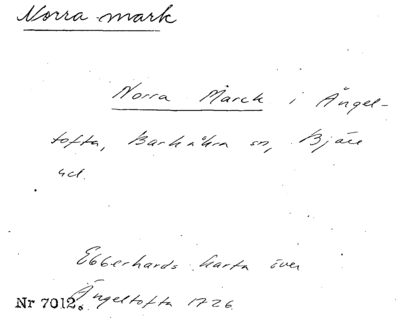 Norra mark
Norra Marck i Ängel-
tofta, Barkåkra sn, Bjäre
hd.
Ebberhards karta över
Nr 7012. Ängeltofta 1726